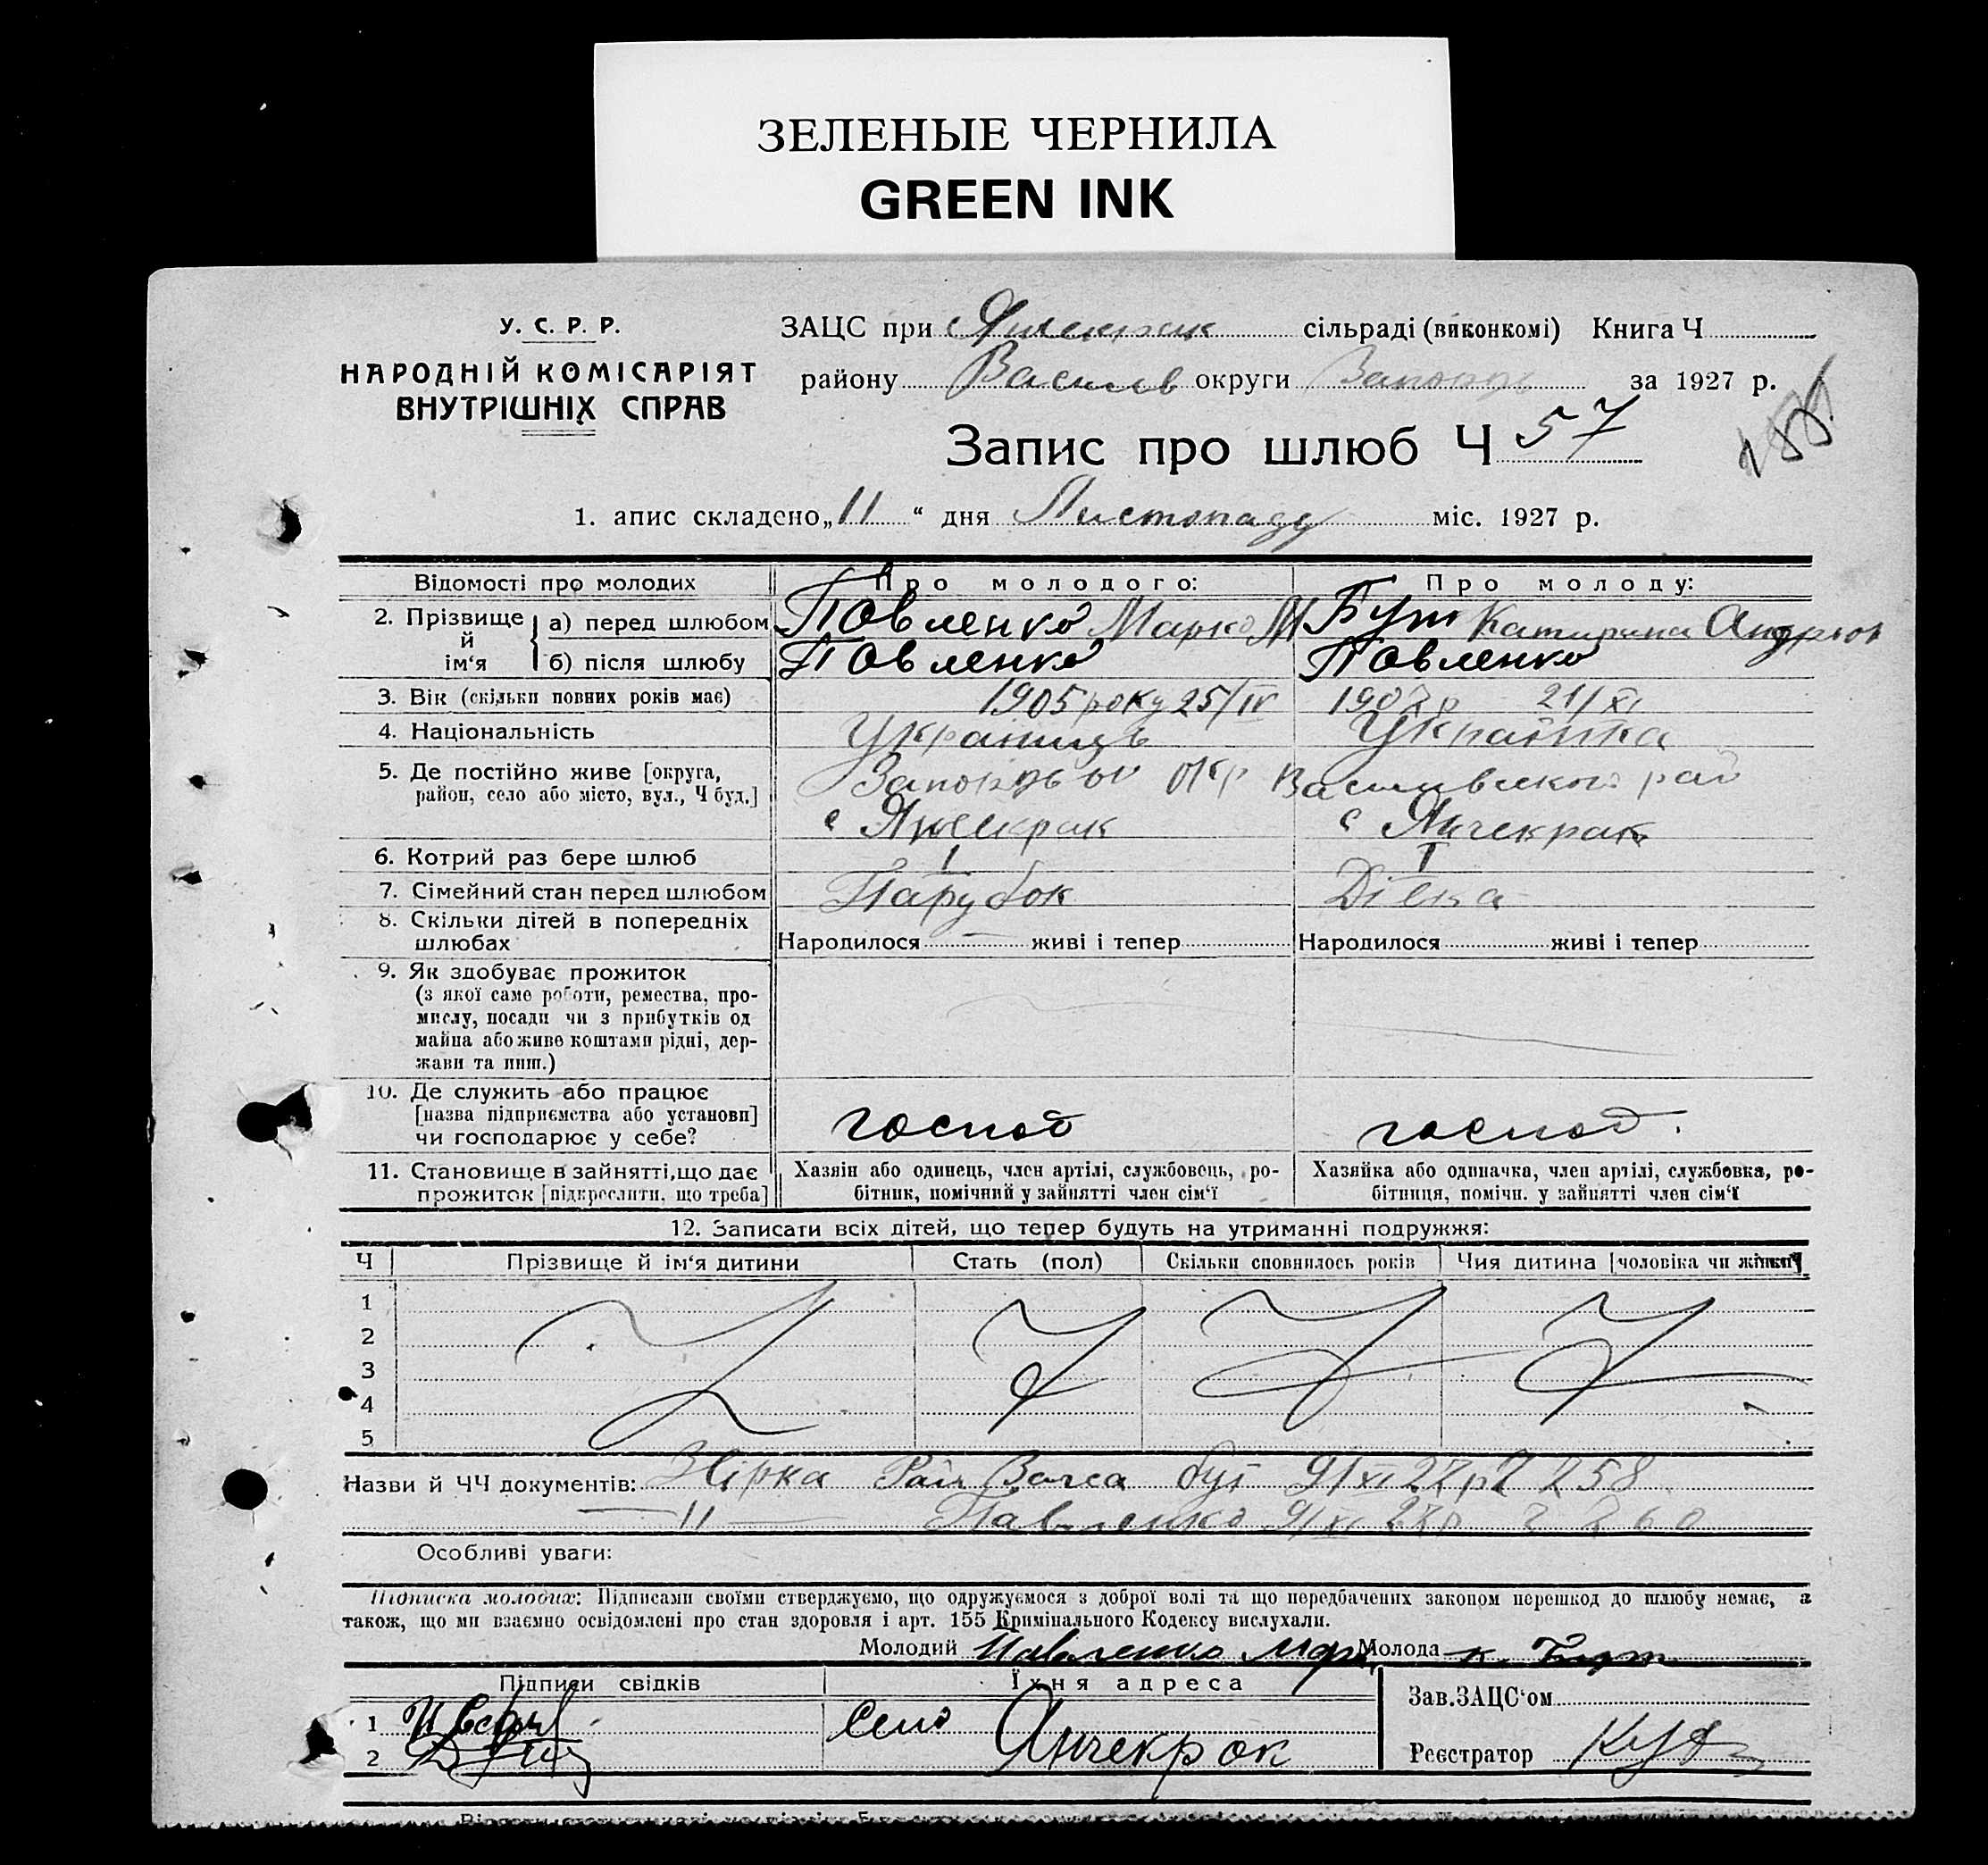 ЗЕЛЕНЫЕ ЧЕРНИЛА
GREEN INK
У. С. Р. Р.
НАРОДНІЙ КОМІСАРІЯТ
ВНУТРІШНІХ СПРАВ
ЗАЦС при Янчекрак сільраді (виконкомі) Книга Ч
району Василів округи Запоріж за 1927 р.
Запис про шлюб Ч 57
1. апис складено „11“ дня Листопаду міс. 1927 р.
Відомості про молодих Про молодого: Про молоду:
2. Прізвище й ім‘я а) перед шлюбом Павленко Марко М Бут Катирина Андріов
б) після шлюбу Павленко Павленко
3. Вік (скільки повних років має) 1905 року 25/IV 1907р 21/XI
4. Національність Украінець Українка
5. Де постійно живе [округа, Запорізької Окр Василівського рай
район, село або місто, вул., Ч буд.]
с Янчекрак с Янчекрак
6. Котрий раз бере шлюб I I
7. Сімейний стан перед шлюбом Парубок Дівка
8. Скільки дітей в попередніх
шлюбах Народилося живі і тепер Народилося живі і тепер
9. Як здобуває прожиток
(з якої саме роботи, ремества, про-
мислу, посади чи з прибутків од
майна або живе коштами рідні, дер-
жави та инш.)
10. Де служить або працює
[назва підприємства або установи]
чи господарює у себе? господ господ.
11. Становище в зайнятті, що дає Хазяїн або одинець, член артілі, службовець, ро- Хазяйка або одиначка, член артілі, службовка, ро-
прожиток [підкреслити, що треба] бітник, помічний у зайнятті член сім‘ї бітниця, помічн. у зайнятті член сім‘ї
12. Записати всіх дітей, що тепер будуть на утриманні подружжя:
Ч Прізвище й ім‘я дитини Стать (пол) Скільки сповнилось років Чия дитина [чоловіка чи жінки]
1
2
3
4
5
Назви й ЧЧ документів: 9/XI 27р 258
— 11 — Павленко 9/XI 27р 260
Особливі уваги:
Підписка молодих: Підписами своїми стверджуємо, що одружуємося з доброї волі та що передбачених законом перешкод до шлюбу немає, а
також, що ми взаємно освідомлені про стан здоровля і арт. 155 Кримінального Кодексу вислухали.
Молодий Павленко Мар Молода К. Бут
Підписи свідків Їхня адреса Зав.ЗАЦС‘ом
1 Село
2 Янчекрок Реєстратор